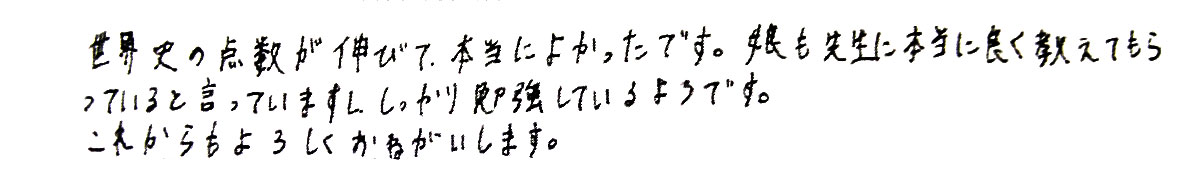 世界史の点数が伸びて、本当によかったです。娘も先生に本当に良く教えてもら
っていると言っていますし、しっかり勉強しているようです。
これからもよろしくおねがいします。